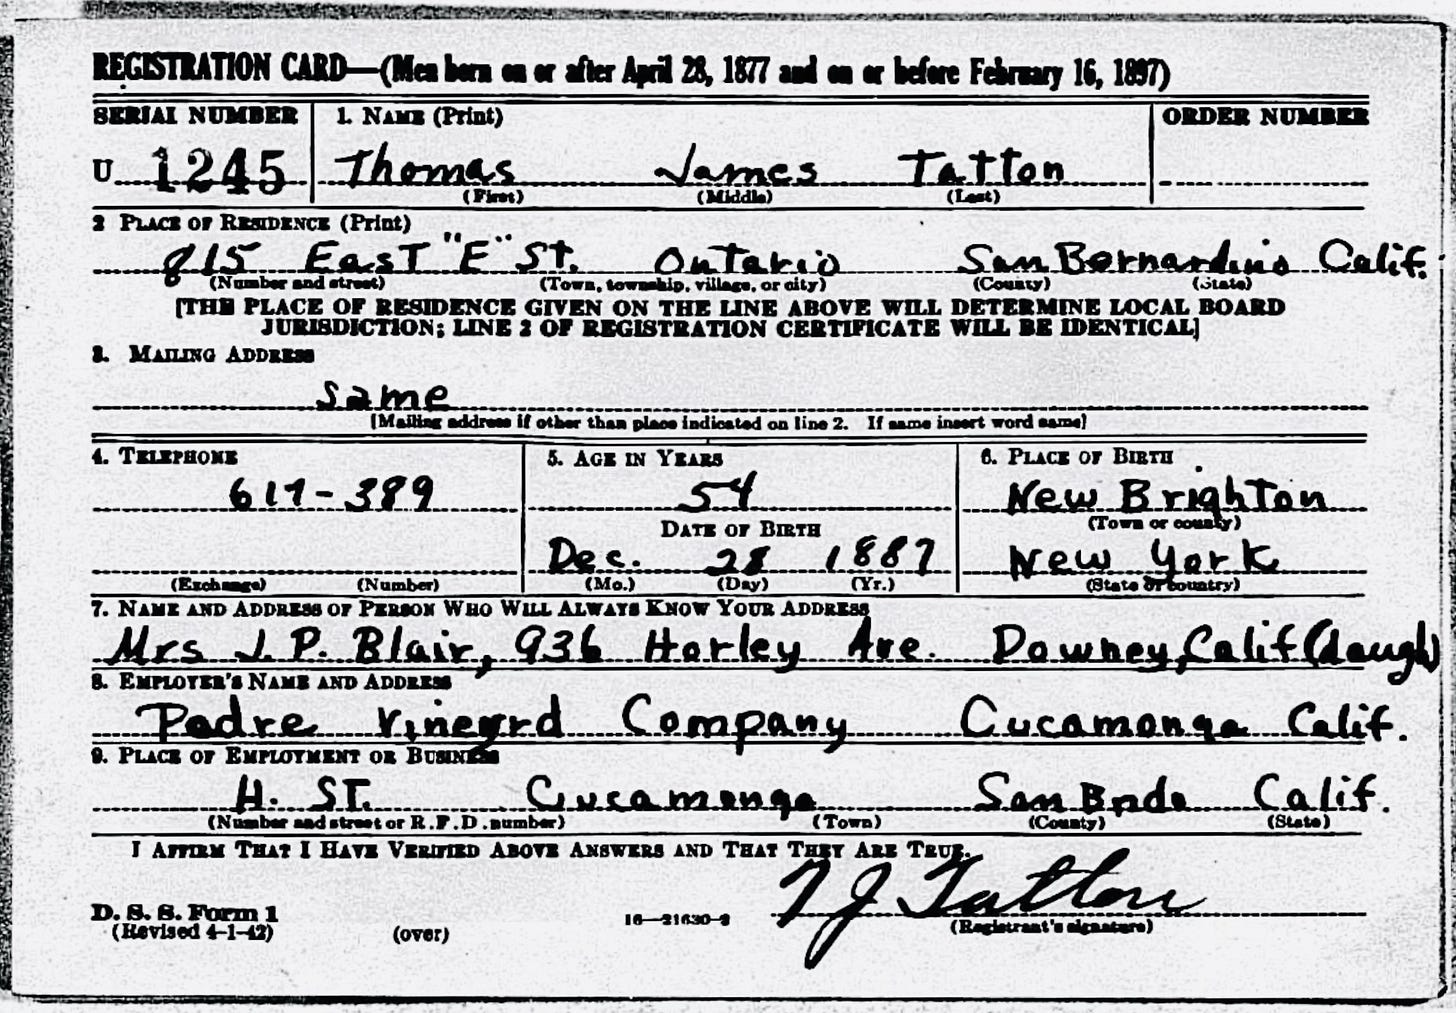 REGISTRATION CARD—(Men born on or after April 28, 1877 and on or before February 16, 1897)
SERIAL NUMBER 1. NAME (Print) ORDER NUMBER
U 1245 Thomas James Tatton
(First) (Middle) (Last)
2 PLACE OF RESIDENCE (Print)
815 East "E" St. Ontario San Bernardino Calif.
(Number and street) (Town, township, village, or city) (County) (State)
[THE PLACE OF RESIDENCE GIVEN ON THE LINE ABOVE WILL DETERMINE LOCAL BOARD
JURISDICTION; LINE 2 OF REGISTRATION CERTIFICATE WILL BE IDENTICAL]
3. MAILING ADDRESS
same
[Mailing address if other than place indicated on line 2. If same insert word same]
4. TELEPHONE 5. AGE IN YEARS 6. PLACE OF BIRTH
617-389 54 New Brighton
DATE OF BIRTH (Town or county)
Dec. 28 1887 New York
(Exchange) (Number) (Mo.) (Day) (Yr.) (State or country)
7. NAME AND ADDRESS OF PERSON WHO WILL ALWAYS KNOW YOUR ADDRESS
Mrs J. P. Blair, 936 Horley Ave. Downey, Calif (daugh)
8. EMPLOYER'S NAME AND ADDRESS
Padre Vineyrd Company Cucamonga Calif.
9. PLACE OF EMPLOYMENT OR BUSINESS
H. ST. Cucamonga San Brdo Calif.
(Number and street or R. F. D. number) (Town) (County) (State)
I AFFIRM THAT I HAVE VERIFIED ABOVE ANSWERS AND THAT THEY ARE TRUE.
T J Tatton
D. S. S. Form 1 16—21630-2 (Registrant's signature)
(Revised 4-1-42) (over)